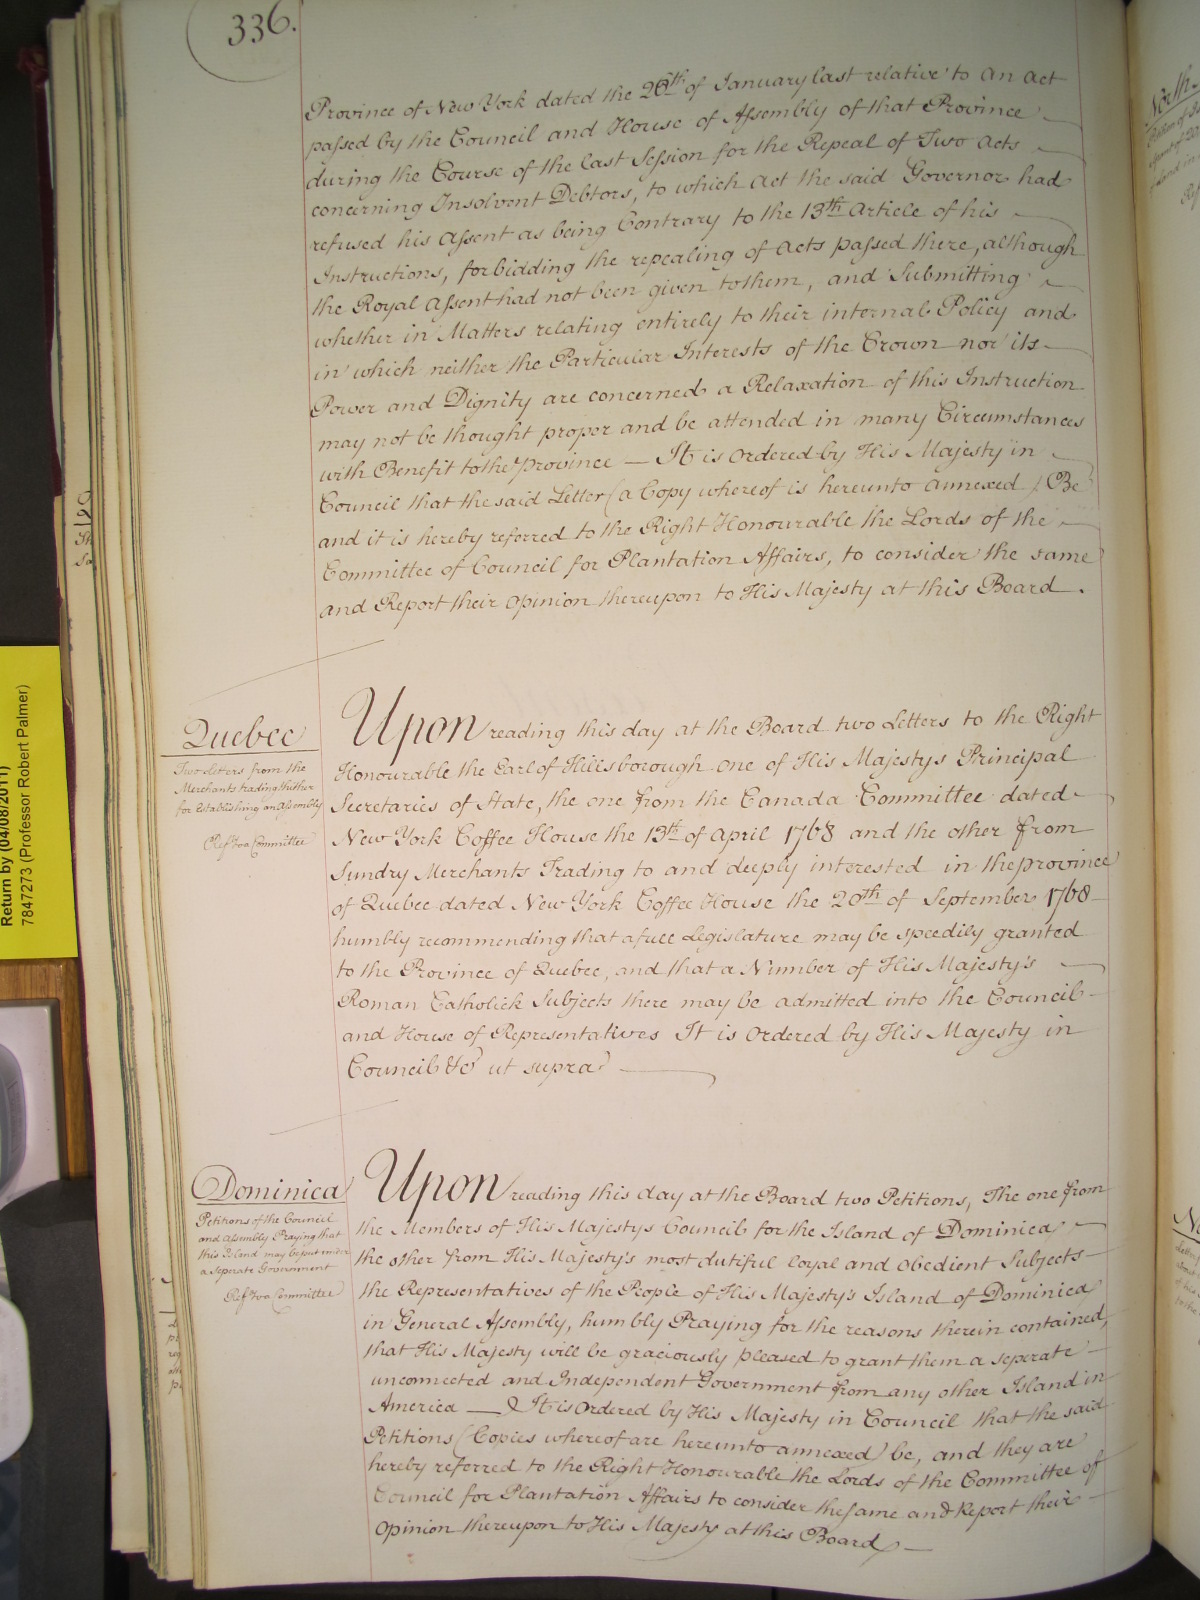 336.
Province of New York dated the 28th of January last relative to an Act
passed by the Council and House of Assembly of that Province
during the Course of the last Session for the Repeal of Two Acts
concerning Insolvent Debtors, to which Act the said Governor had
refused his Assent as being Contrary to the 13th Article of his
Instructions, forbidding the repealing of Acts passed there, although
the Royal Assent had not been given to them, and Submitting
whether in Matters relating entirely to their internal Policy and
in which neither the Particular Interests of the Crown nor its
Power and Dignity are concerned a Relaxation of this Instruction
may not be thought proper and be attended in many Circumstances
with Benefit to the Province — It is Ordered by His Majesty in
Council that the said Letter (a Copy whereof is hereunto annexed) Be
and it is hereby referred to the Right Honourable the Lords of the
Committee of Council for Plantation Affairs, to consider the same
and Report their Opinion thereupon to His Majesty at this Board.
Quebec
Two Letters from the
Merchants trading thither
for Establishing an Assembly
Ref'd to a Committee
Upon reading this day at the Board two Letters to the Right
Honourable the Earl of Hillsborough one of His Majestys Principal
Secretaries of State, the one from the Canada Committee dated
New York Coffee House the 13th of April 1768 and the other from
Sundry Merchants Trading to and deeply interested in the province
of Quebec dated New York Coffee House the 20th of September 1768
humbly recommending that a full Legislature may be speedily granted
to the Province of Quebec, and that a Number of His Majesty's
Roman Catholick Subjects there may be admitted into the Council
and House of Representatives It is Ordered by His Majesty in
Council &c ut supra
Dominica
Petitions of the Council
and Assembly Praying that
this Island may be put under
a Seperate Government
Ref'd to a Committee
Upon reading this day at the Board two Petitions, The one from
the Members of His Majestys Council for the Island of Dominica
the other from His Majesty's most dutiful loyal and obedient Subjects
the Representatives of the People of His Majesty's Island of Dominica
in General Assembly, humbly Praying for the reasons therein contained,
that His Majesty will be graciously pleased to grant them a seperate
unconnected and Independent Government from any other Island in
America — It is Ordered by His Majesty in Council that the said
Petitions (Copies whereof are hereunto annexed) be, and they are
hereby referred to the Right Honourable the Lords of the Committee of
Council for Plantation Affairs to consider the same and Report their
Opinion thereupon to His Majesty at this Board —
Return by (04/08/2011)
7847273 (Professor Robert Palmer)
North